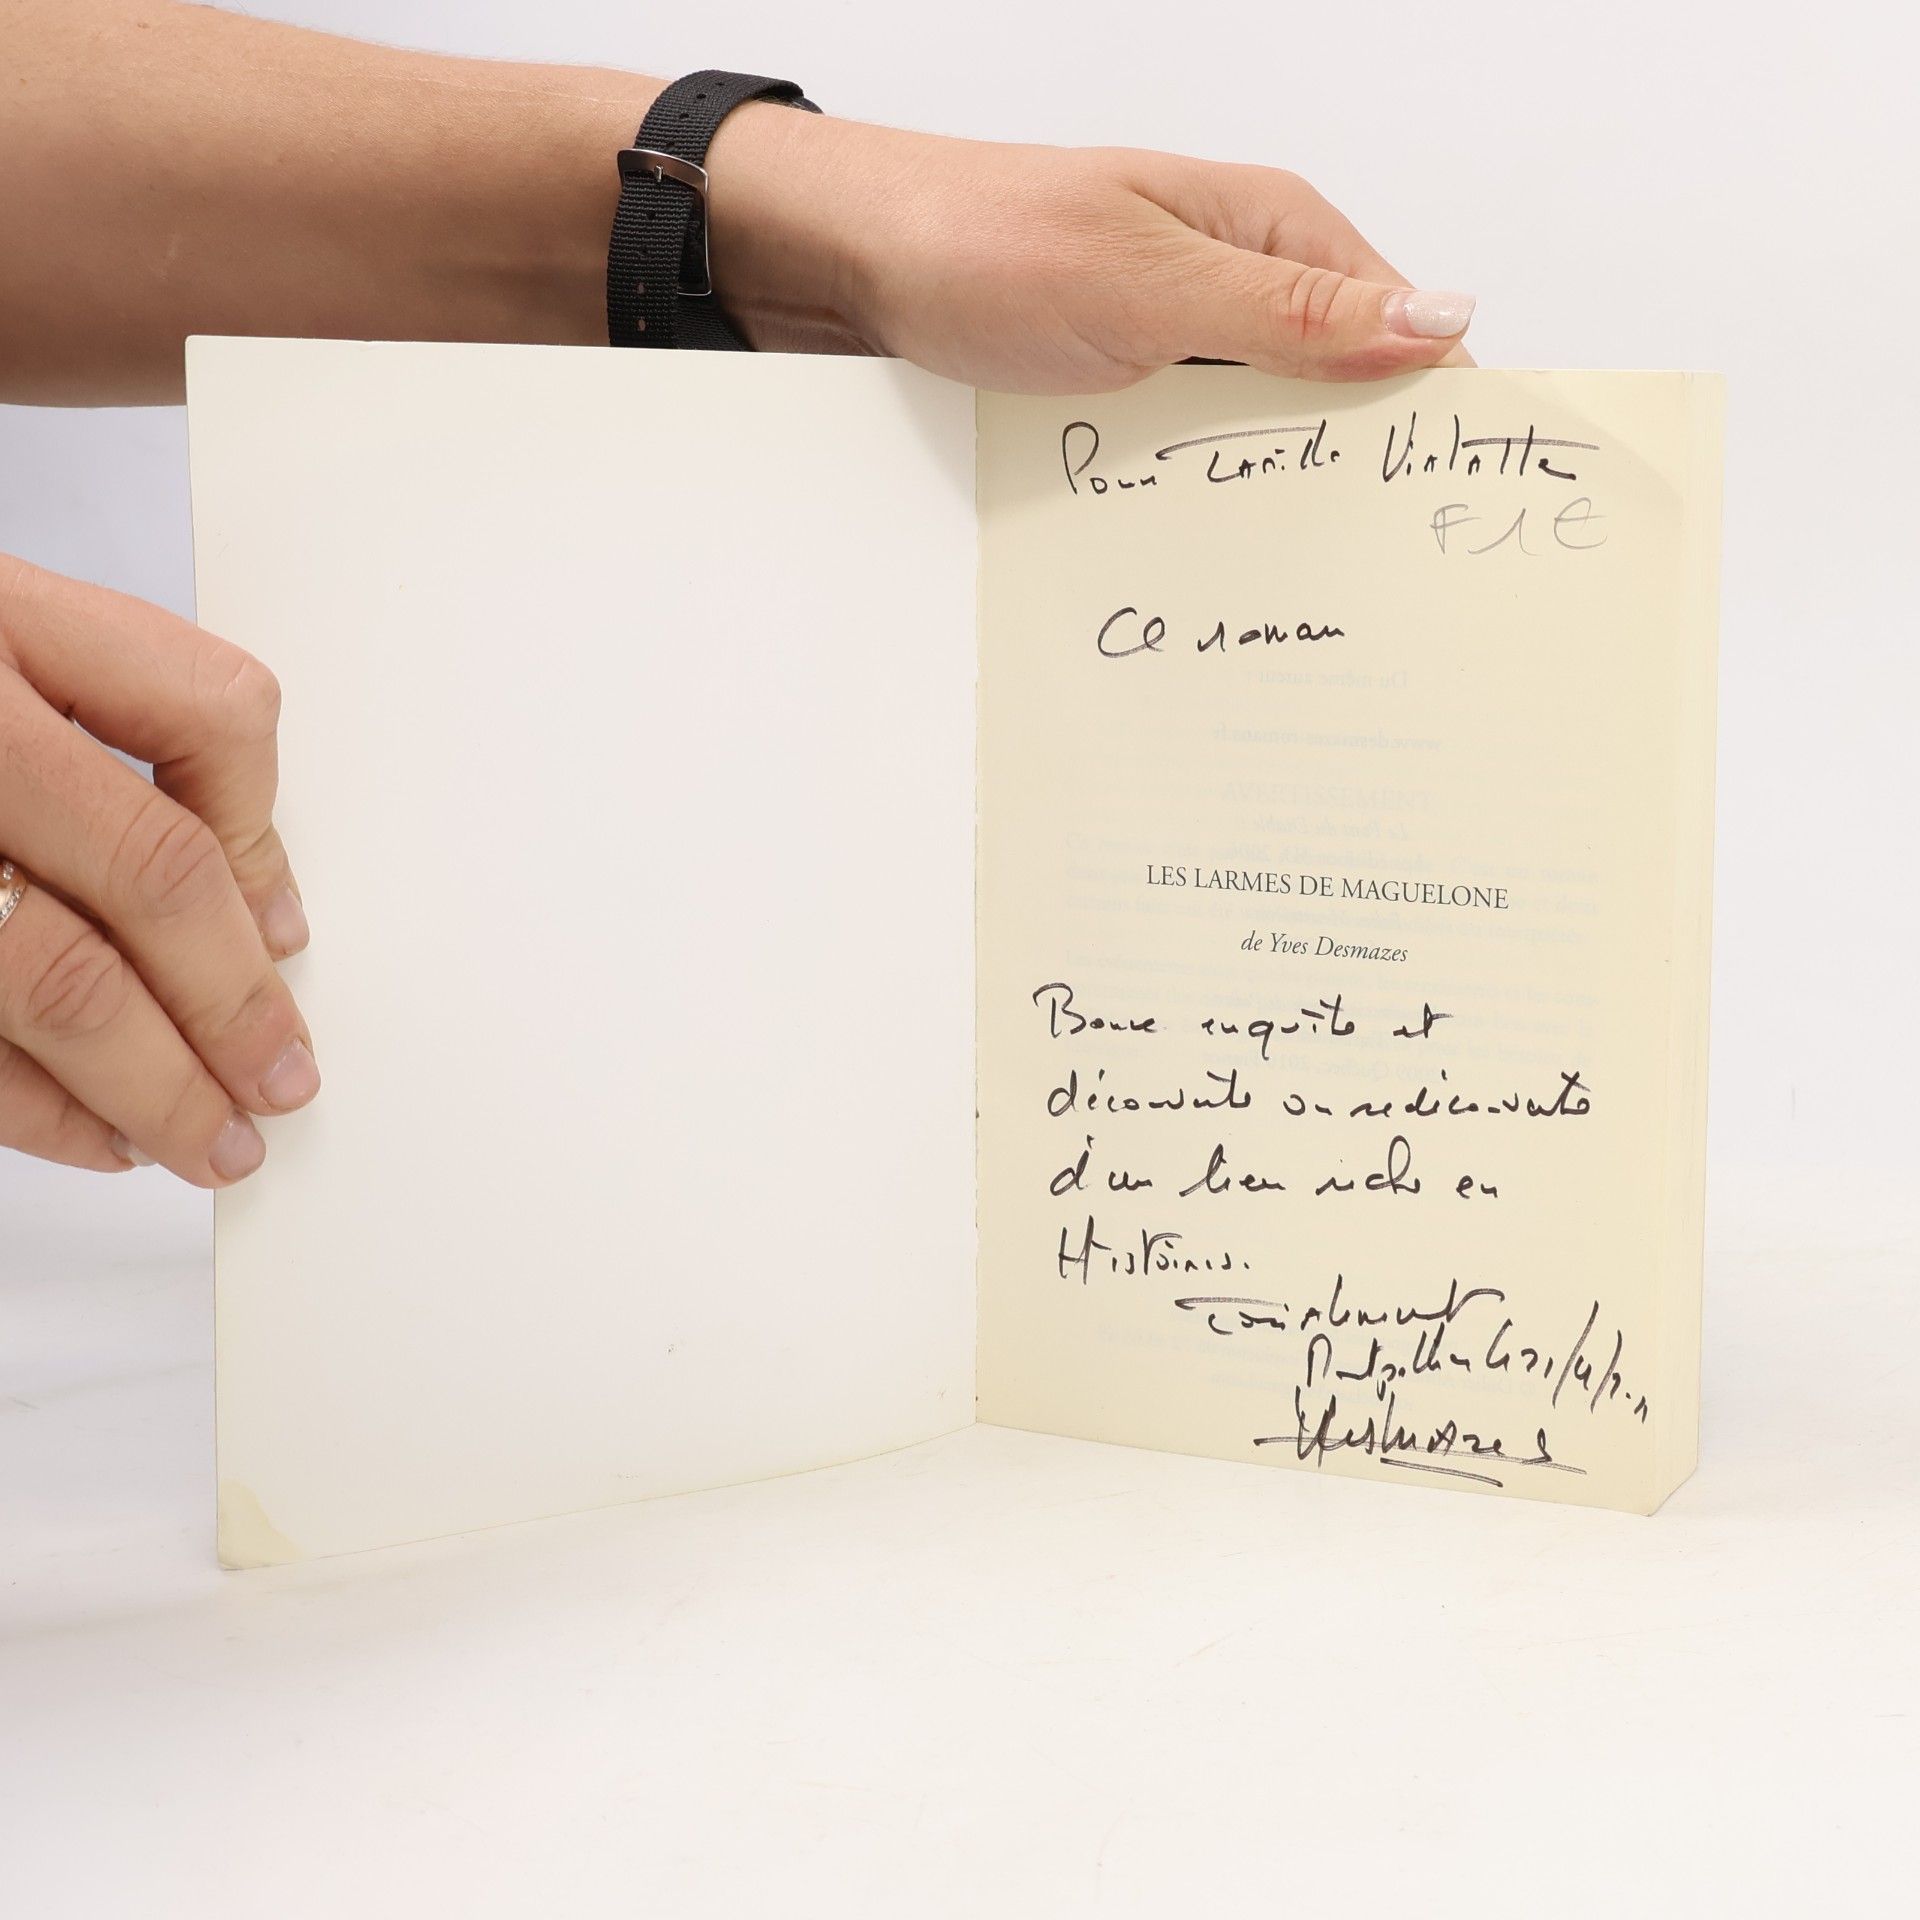 Pour Camille Vialatte
F 1 €
Ce roman
LES LARMES DE MAGUELONE
de Yves Desmazes
Bonne enquête et
découverte ou redécouverte
d'un lieu riche en
Histoires.
Cordialement
Montpellier le 21/4/2011
YDesmazes